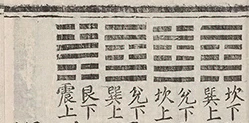 坎下
巽上
兌下
坎上
兌下
巽上
艮下
震上